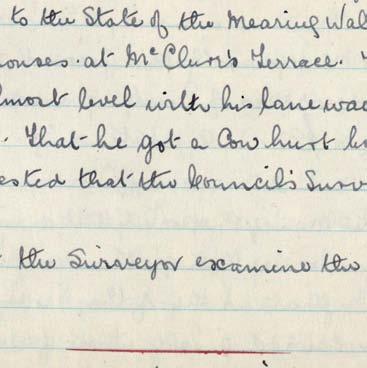 to the State of the Mearing Wal
houses at McClure's Terrace.
lmost level with his lane way
. That he got a Cow hurt
ested that the Council's Surv
the Surveyor examine the